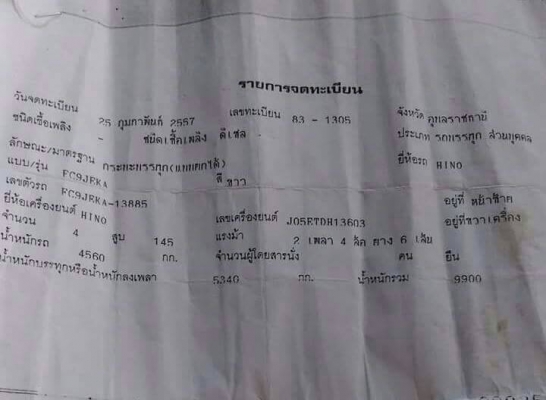 รายการจดทะเบียน
วันจดทะเบียน 25 กุมภาพันธ์ 2557 เลขทะเบียน 83 - 1305 จังหวัด อุบลราชธานี
ชนิดเชื้อเพลิง - ชนิดเชื้อเพลิง ดีเซล - ประเภท รถบรรทุก ส่วนบุคคล
ลักษณะ/มาตรฐาน กระบะบรรทุก(แบบยกได้) ยี่ห้อรถ HINO
แบบ/รุ่น FC9JEKA สี ขาว
เลขตัวรถ FC9JEKA-13885 อยู่ที่ หน้าซ้าย
ยี่ห้อเครื่องยนต์ HINO เลขเครื่องยนต์ J05ETDH13603 อยู่ที่ขวาเครื่อง
จำนวน 4 สูบ 145 แรงม้า 2 เพลา 4 ล้อ ยาง 6 เส้น
น้ำหนักรถ 4560 กก. จำนวนผู้โดยสารนั่ง คน ยืน
น้ำหนักบรรทุกหรือน้ำหนักลงเพลา 5340 กก. น้ำหนักรวม 9900